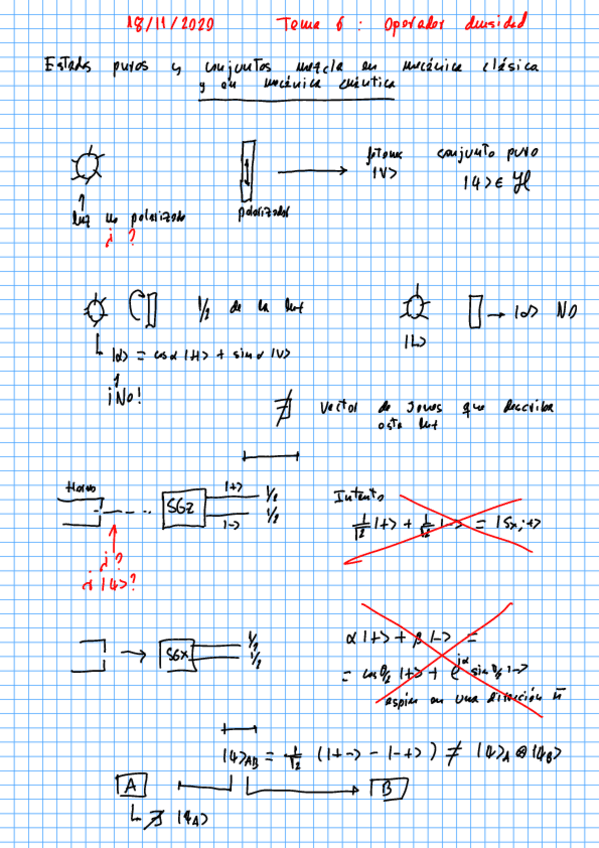 18/11/2020 Tema 6: Operador densidad
Estados puros y conjuntos mezcla en mecánica clásica
y en mecánica cuántica
fotones
|V>
conjunto puro
|ψ> ∈ ℋ
luz no polarizada
¿ ?
polarizador
1/2 de la luz
|α> NO
|α> = cosα |H> + sinα |V>
|L>
¡No!
∄ Vector de Jones que describa
esta luz
Horno
SGz
|+> 1/2
|-> 1/2
Intento
1/√2 |+> + 1/√2 |-> = |Sx;+>
¿ ?
¿ |ψ>?
SGx
1/2
1/2
α|+> + β|-> =
= cosθ/2 |+> + e^{iα} sinθ/2 |->
espín en una dirección n
|ψ>AB = 1/√2 (|+-> - |-+>) ≠ |ψ>A ⊗ |ψB>
A
B
∄ |ψA>